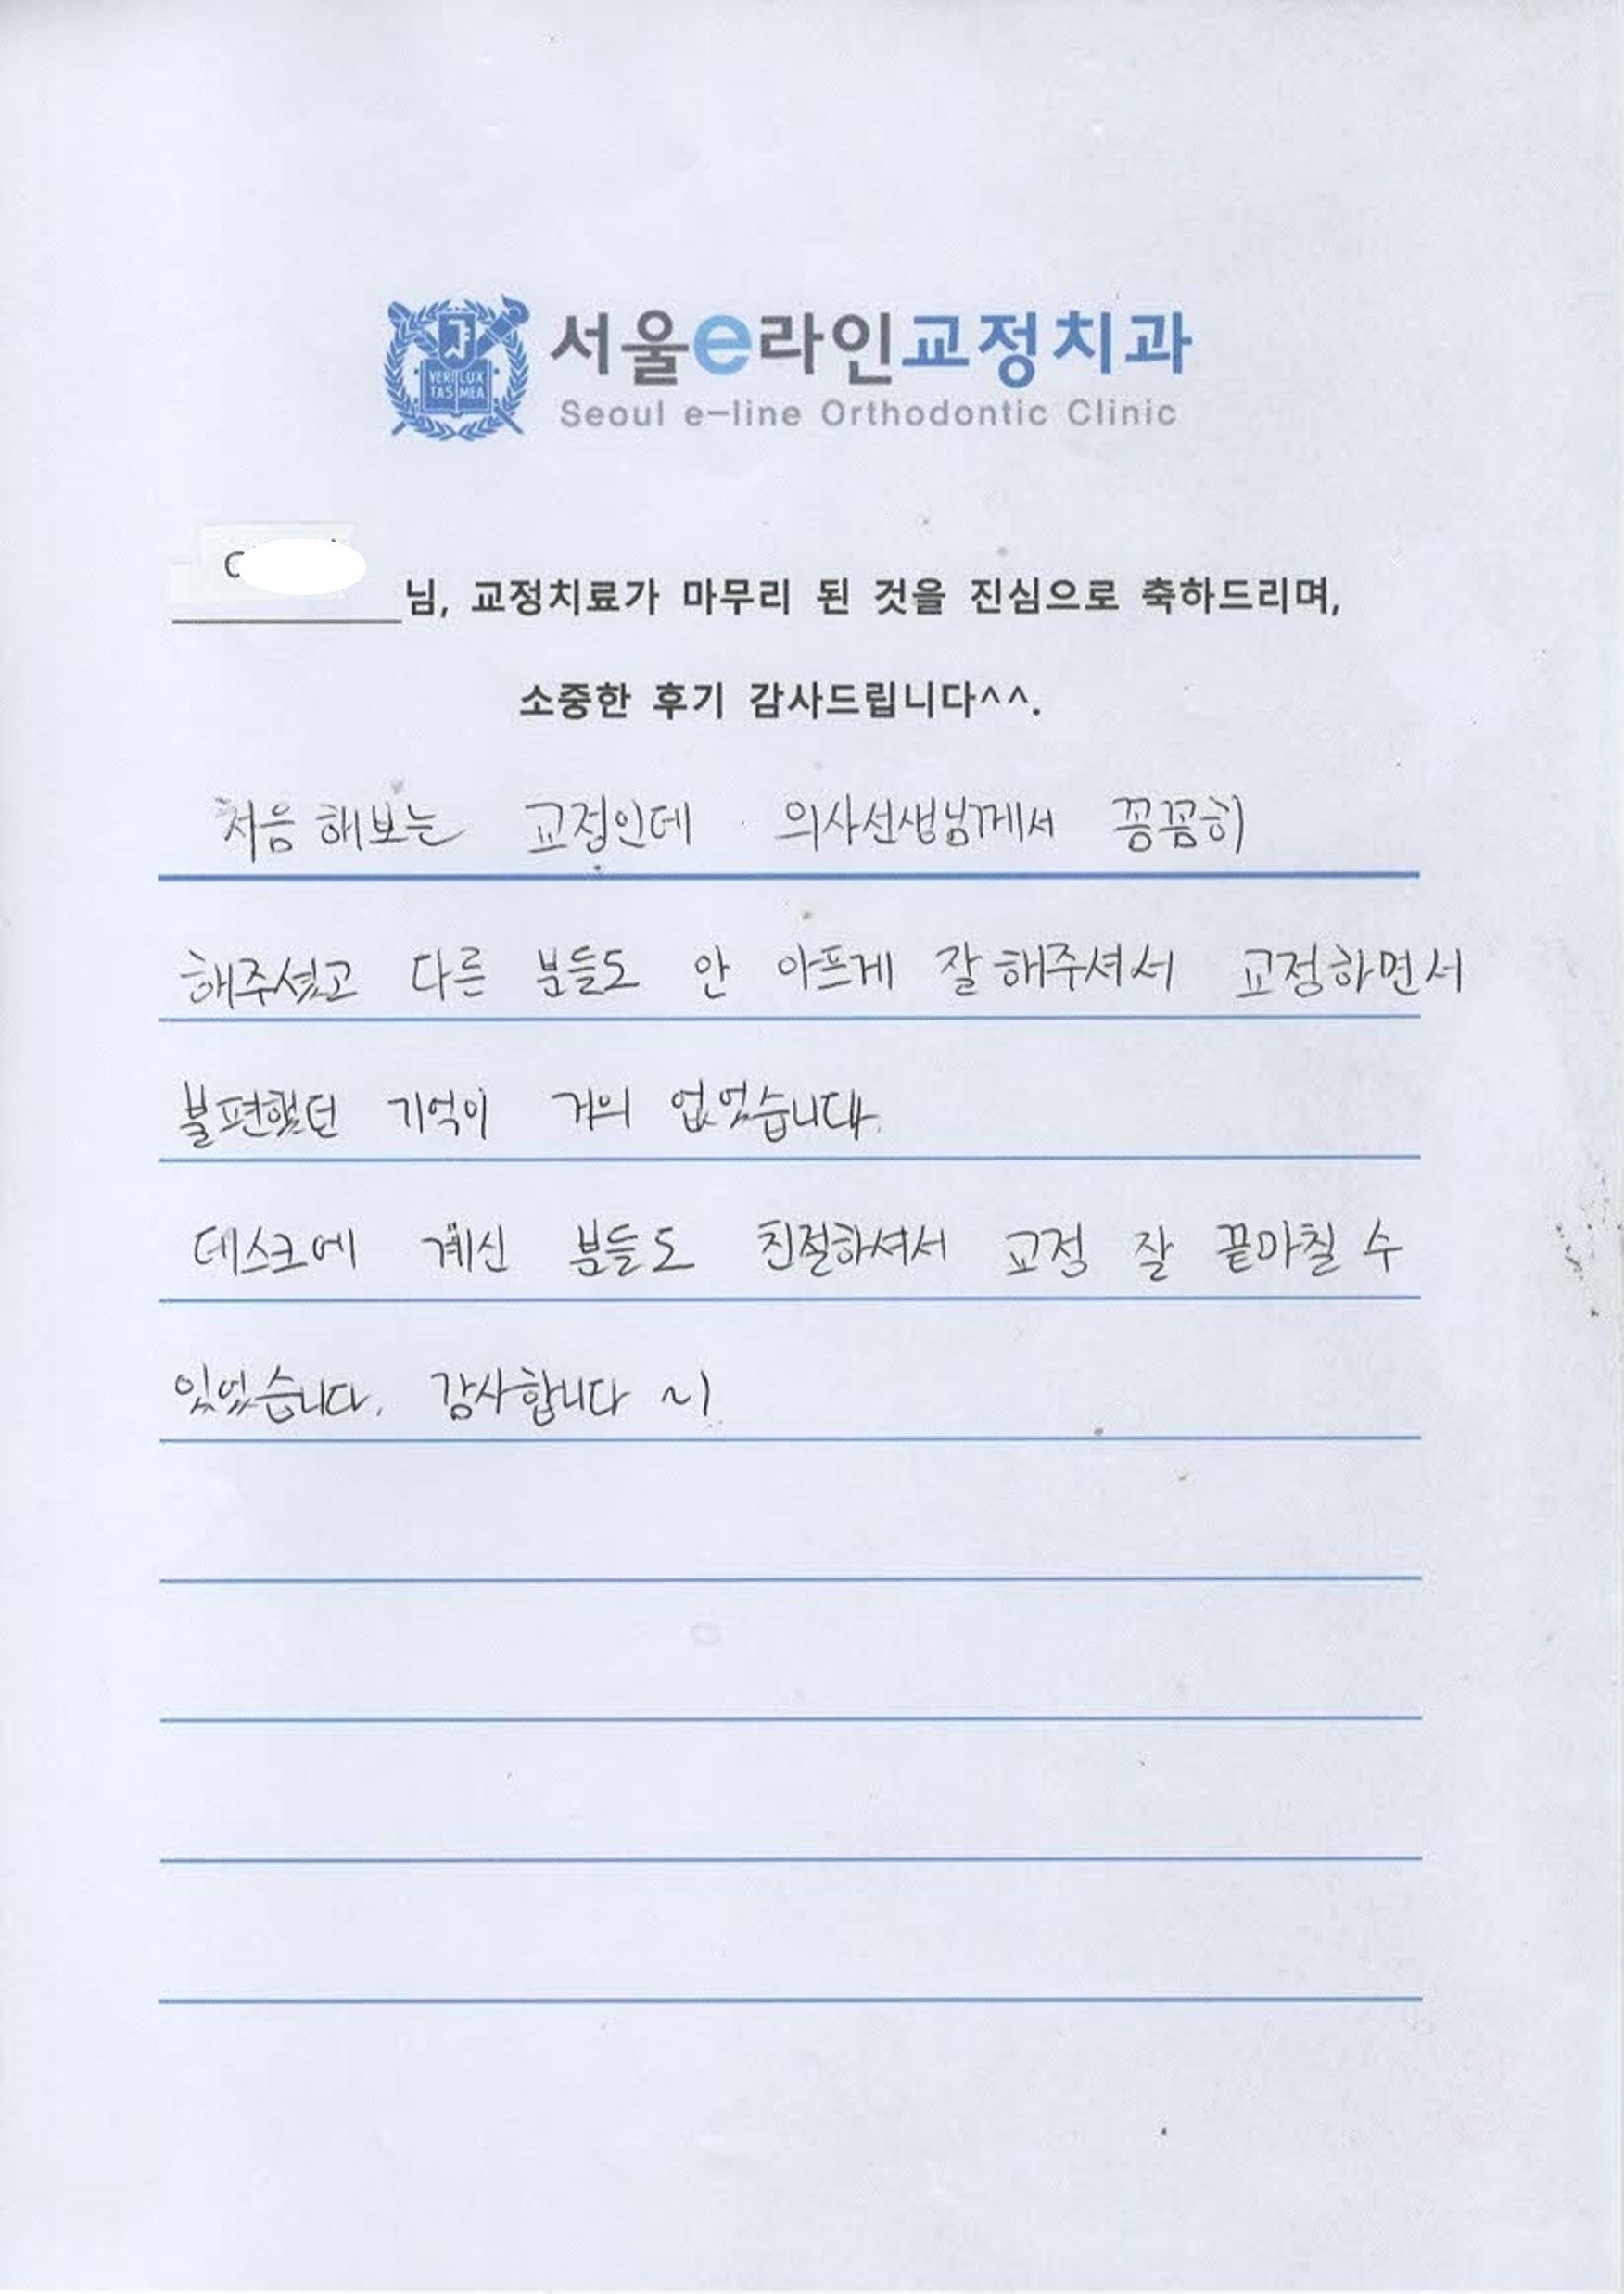 VERI LUX
TAS MEA
서울e라인교정치과
Seoul e-line Orthodontic Clinic
님, 교정치료가 마무리 된 것을 진심으로 축하드리며,
소중한 후기 감사드립니다^^.
처음 해보는 교정인데 의사선생님께서 꼼꼼히
해주셨고 다른 분들도 안 아프게 잘해주셔서 교정하면서
불편했던 기억이 거의 없었습니다.
데스크에 계신 분들도 친절하셔서 교정 잘 끝마칠 수
있었습니다. 감사합니다 ~!